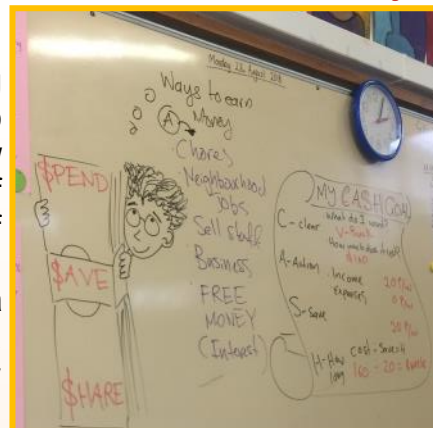 Monday 27 August 2018
Ways to earn
Money
A
Chores
Neighbourhood
jobs
Sell stuff
Business
FREE
MONEY
(Interest)
$PEND
$AVE
$HARE
MY CASH GOAL
C - clear What do I want?
How much does it cost?
A - Action Income 20 P/w
expenses 0 P/w
S - save
20 P/w
H - How long
cost ÷ save